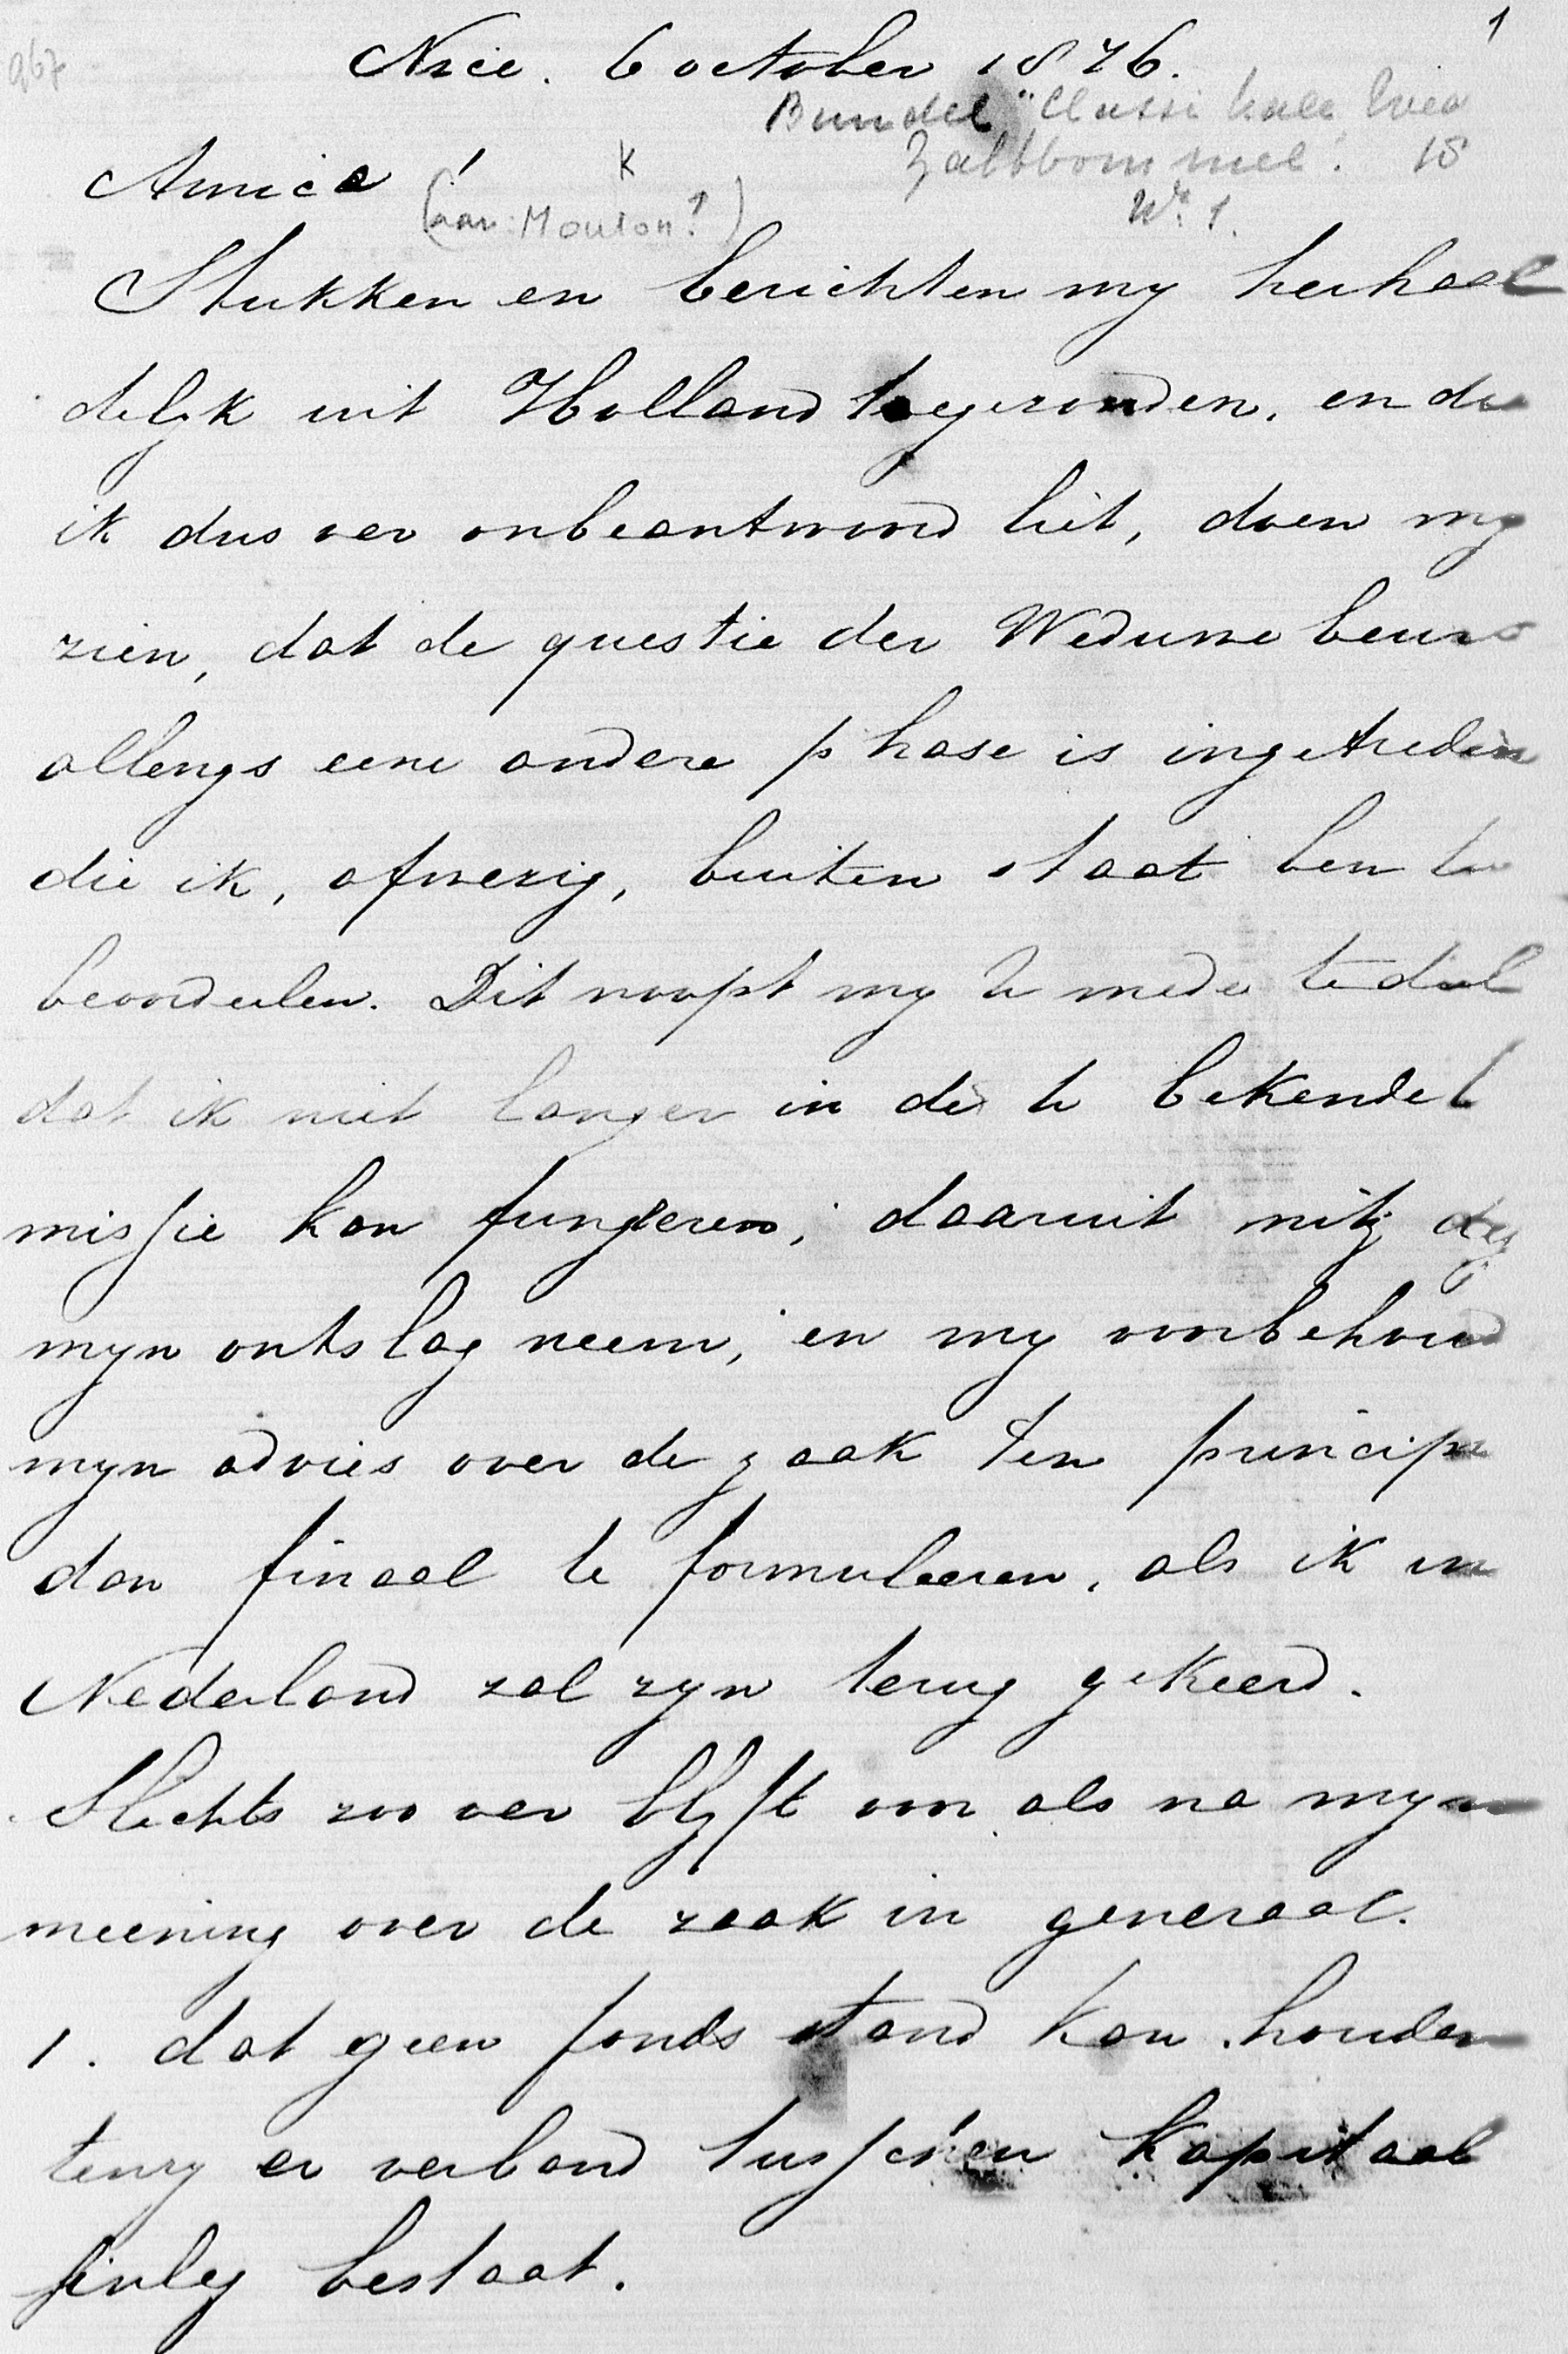 967
1
Nice. 6 october 1876.
Bundel "Classikale
Zaltbommel". 18
No. 1.
Amice!
K
(aan: Mouton?)
Stukken en berichten my herhaal
delyk uit Holland toegezonden, en die
ik dus ver onbeantwoord liet, doen my
zien, dat de questie der Weduwe beurs
allengs eene andere phase is ingetreden
die ik, afwezig, buiten staat ben te
beoordeelen. Dit noopt my U mede te deel
dat ik niet langer in de U bekende
missie kan fungeren, daaruit mitz dez
myn ontslag neem, en my voorbehoud
myn advies over de zaak ten principa
dan finaal te formuleeren, als ik in
Nederland zal zyn terug gekeerd.
Slechts zoo ver blyft voor als na myn
meening over de zaak in generaal.
1. dat geen fonds stand kan houden
tenzy er verband tusschen kapitaal
inleg bestaat.